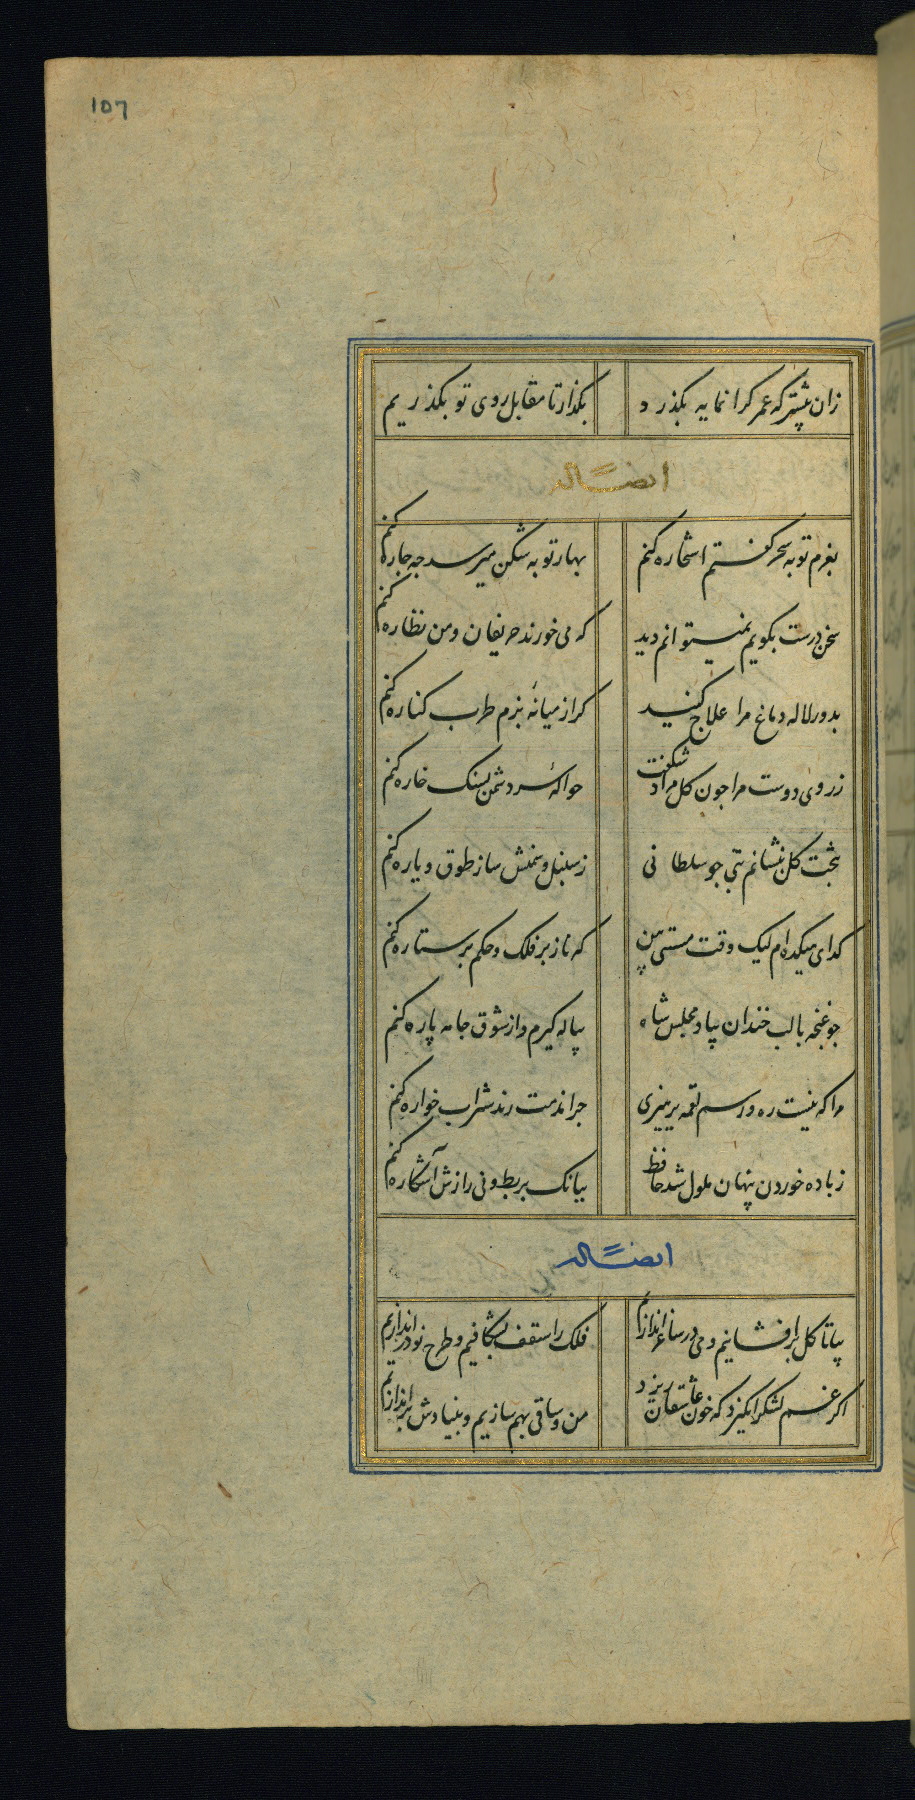 107
زان پیشتر که عمر کرانمایه بکذرد
بکذار تا مقابل روی تو بکذریم
ایضاً له
بعزم توبه سحر کفتم استخاره کنم
بهار توبه شکن میرسد چه چاره کنم
سخن درست بکویم نمیتوانم دید
که می خورند حریفان و من نظاره کنم
بدور لاله دماغ مرا علاج کنید
کر از میانهٔ بزم طرب کناره کنم
ز روی دوست مرا چون کل مراد شکفت
حوالهٔ سر دشمن بسنک خاره کنم
بتخت کل بنشانم بتی چو سلطانی
ز سنبل و سمنش ساز طوق و یاره کنم
کدای میکده ام لیک وقت مستی بین
که ناز بر فلک و حکم بر ستاره کنم
چو غنچه با لب خندان بیاد مجلس شاه
پیاله کیرم و از شوق جامه پاره کنم
مرا که نیست ره و رسم لقمه پرهیزی
چرا مذمت رند شراب خواره کنم
ز باده خوردن پنهان ملول شد حافظ
ببانک بربط و نی رازش آشکاره کنم
ایضاً له
بیا تا کل برافشانیم و می در ساغر اندازیم
فلک را سقف بشکافیم و طرح نو در اندازیم
اکر غم لشکر انکیزد که خون عاشقان ریزد
من و ساقی بهم سازیم و بنیادش براندازیم